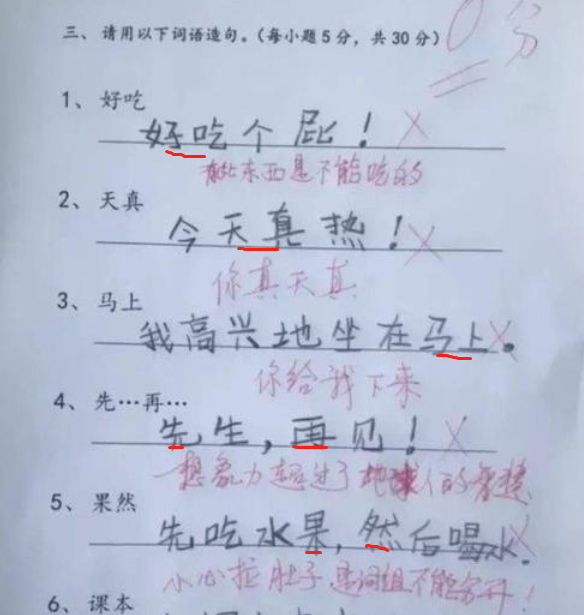 三、请用以下词语造句。(每小题5分，共30分)
0分
1、好吃
好吃个屁！
有些东西是不能吃的
2、天真
今天真热！
你真天真
3、马上
我高兴地坐在马上。
你给我下来
4、先…再…
先生，再见！
想象力超过了地球人的智慧
5、果然
先吃水果，然后喝水。
小心拉肚子 是词组不能分开！
6、课本